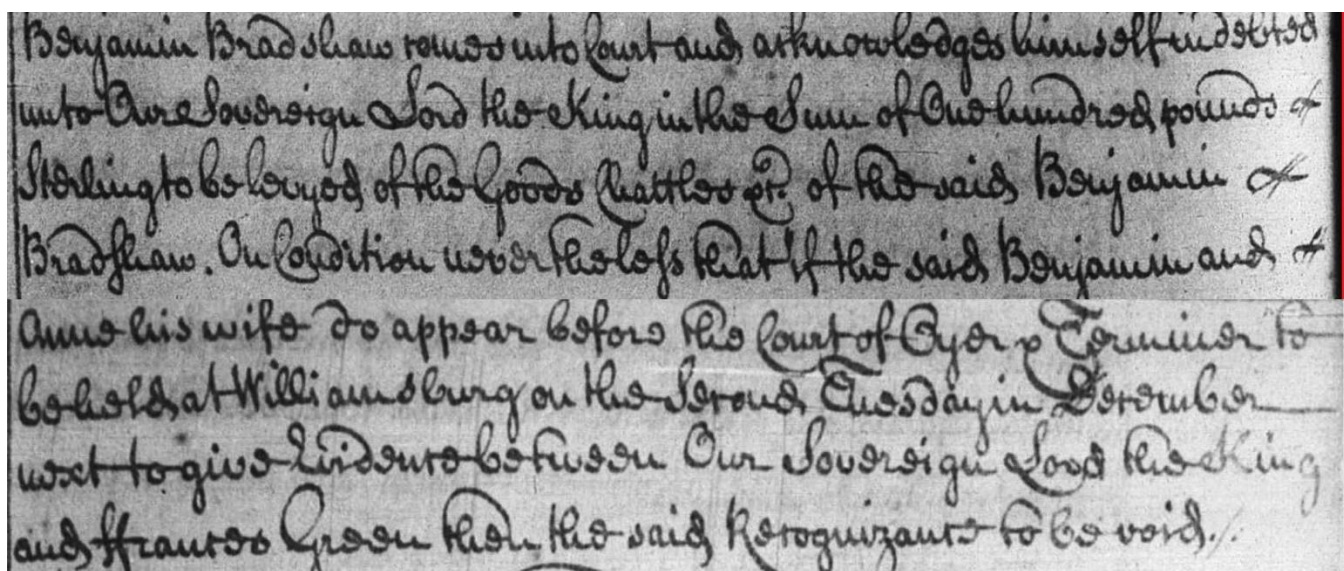 Benjamin Bradshaw comes into Court and acknowledges himself indebted
unto Our Sovereign Lord the King in the Sum of One hundred pounds
Sterling to be levyed of the Goods Chattles &c. of the said Benjamin
Bradshaw. On Condition never the less that if the said Benjamin and
Anne his wife do appear before the Court of Oyer & Terminer to
be held at Williamsburg on the Second Tuesday in December
next to give Evidence between Our Sovereign Lord the King
and ffrances Green then the said Recognizance to be void./.